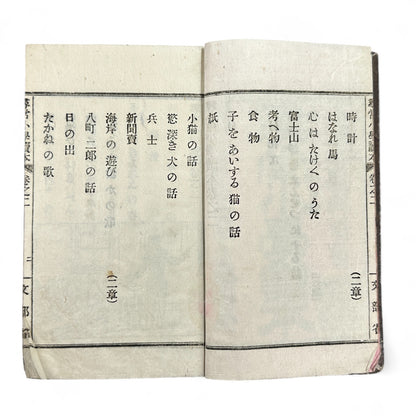 尋常小學讀本 卷之二 文部省
時計 (二章)
はなれ馬
心はたけくのうた
富士山
考へ物
食物
子をあいする猫の話
紙
小猫の話
慾深き犬の話
兵士
新聞賣
海岸の遊び (二章)
八町二郎の話
日の出
たかねの歌
尋常小學讀本 卷之二 二 文部省